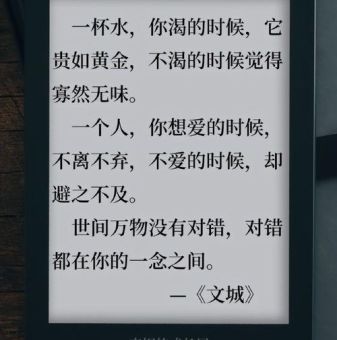 一杯水，你渴的时候，它
贵如黄金，不渴的时候觉得
寡然无味。
一个人，你想爱的时候，
不离不弃，不爱的时候，却
避之不及。
世间万物没有对错，对错
都在你的一念之间。
—《文城》